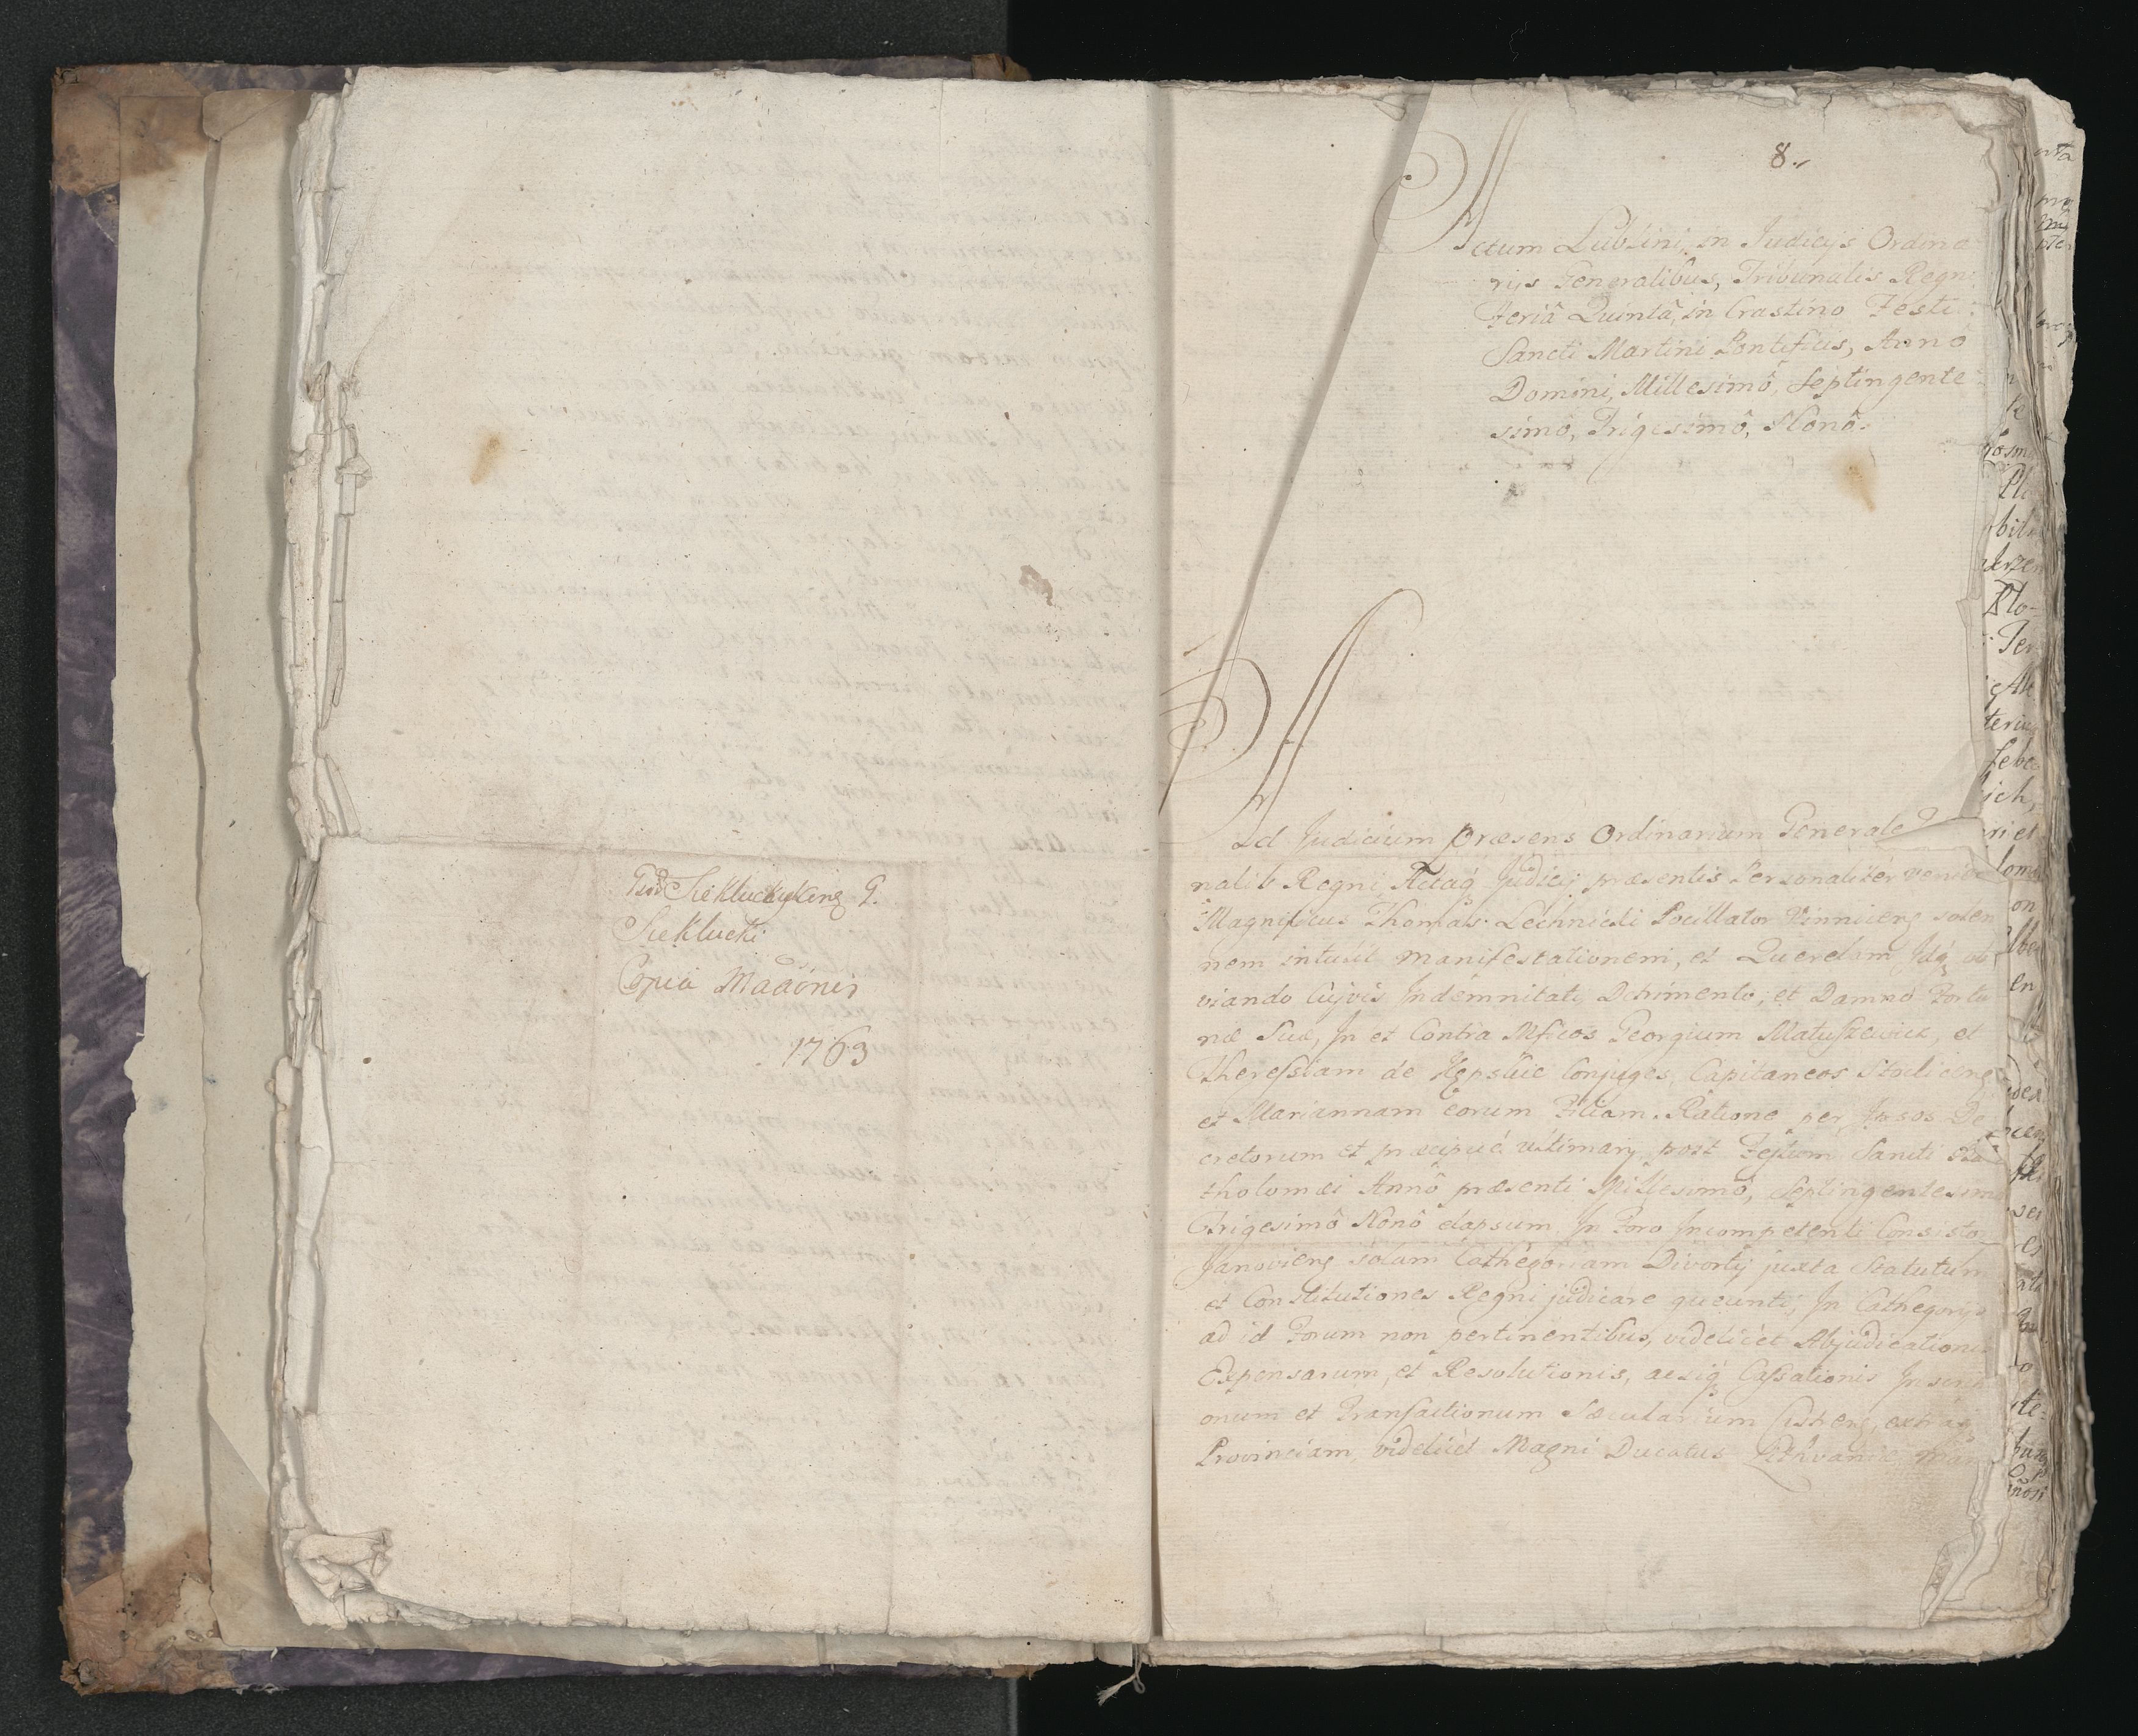 Siekluckikeng G.
Sieklucki
Copia Maãõnis
1763
8.
Actum Lublini, in Judicijs Ordina
rijs Generalibus, Tribunalis Regni
Feriâ Quintâ, in Crastino Festi
Sancti Martini Pontificis, Anno
Domini, Millesimô, Septingente
simô, Trigesimô, Nonô.
Ad Judicium præsens Ordinarium Generale
nalis Regni, Actaq́ Judicij præsentis Personalitér venien
Magnificus Thomas Pocillator Vinnicens solen
nem intulit Manifestationem, et Querelam Idq́ ob
viando Cujvis Indemnitati, Detrimento, et Damno Fortu
næ Suæ, In et Contra Mficos Georgium Matuszewicz, et
Theressiam de Conjuges, Capitaneos Stoklicens
et Mariannam eorum Filiam. Ratione per Ipsos De
cretorum et præcipué ultimarij post Festum Sancti Bar
tholomæi Annô præsenti Millesimô, Septingentesimo
Trigesimô Nonô elapsum, In Foro Incompetenti Consistor
Janoviens solam Cathegoriam Divortij juxta Statutum
et Constitutiones Regni judicare queunti, In Cathegorijs
ad id Forum non pertinentibus, videlicét Abjudicationis
Expensarum, et Resolutionis, ac Cassationis Inscrip
onum et Transactionum Sæcularium extra
Provinciam, videlicét Magni Ducatus Lithvaniæ